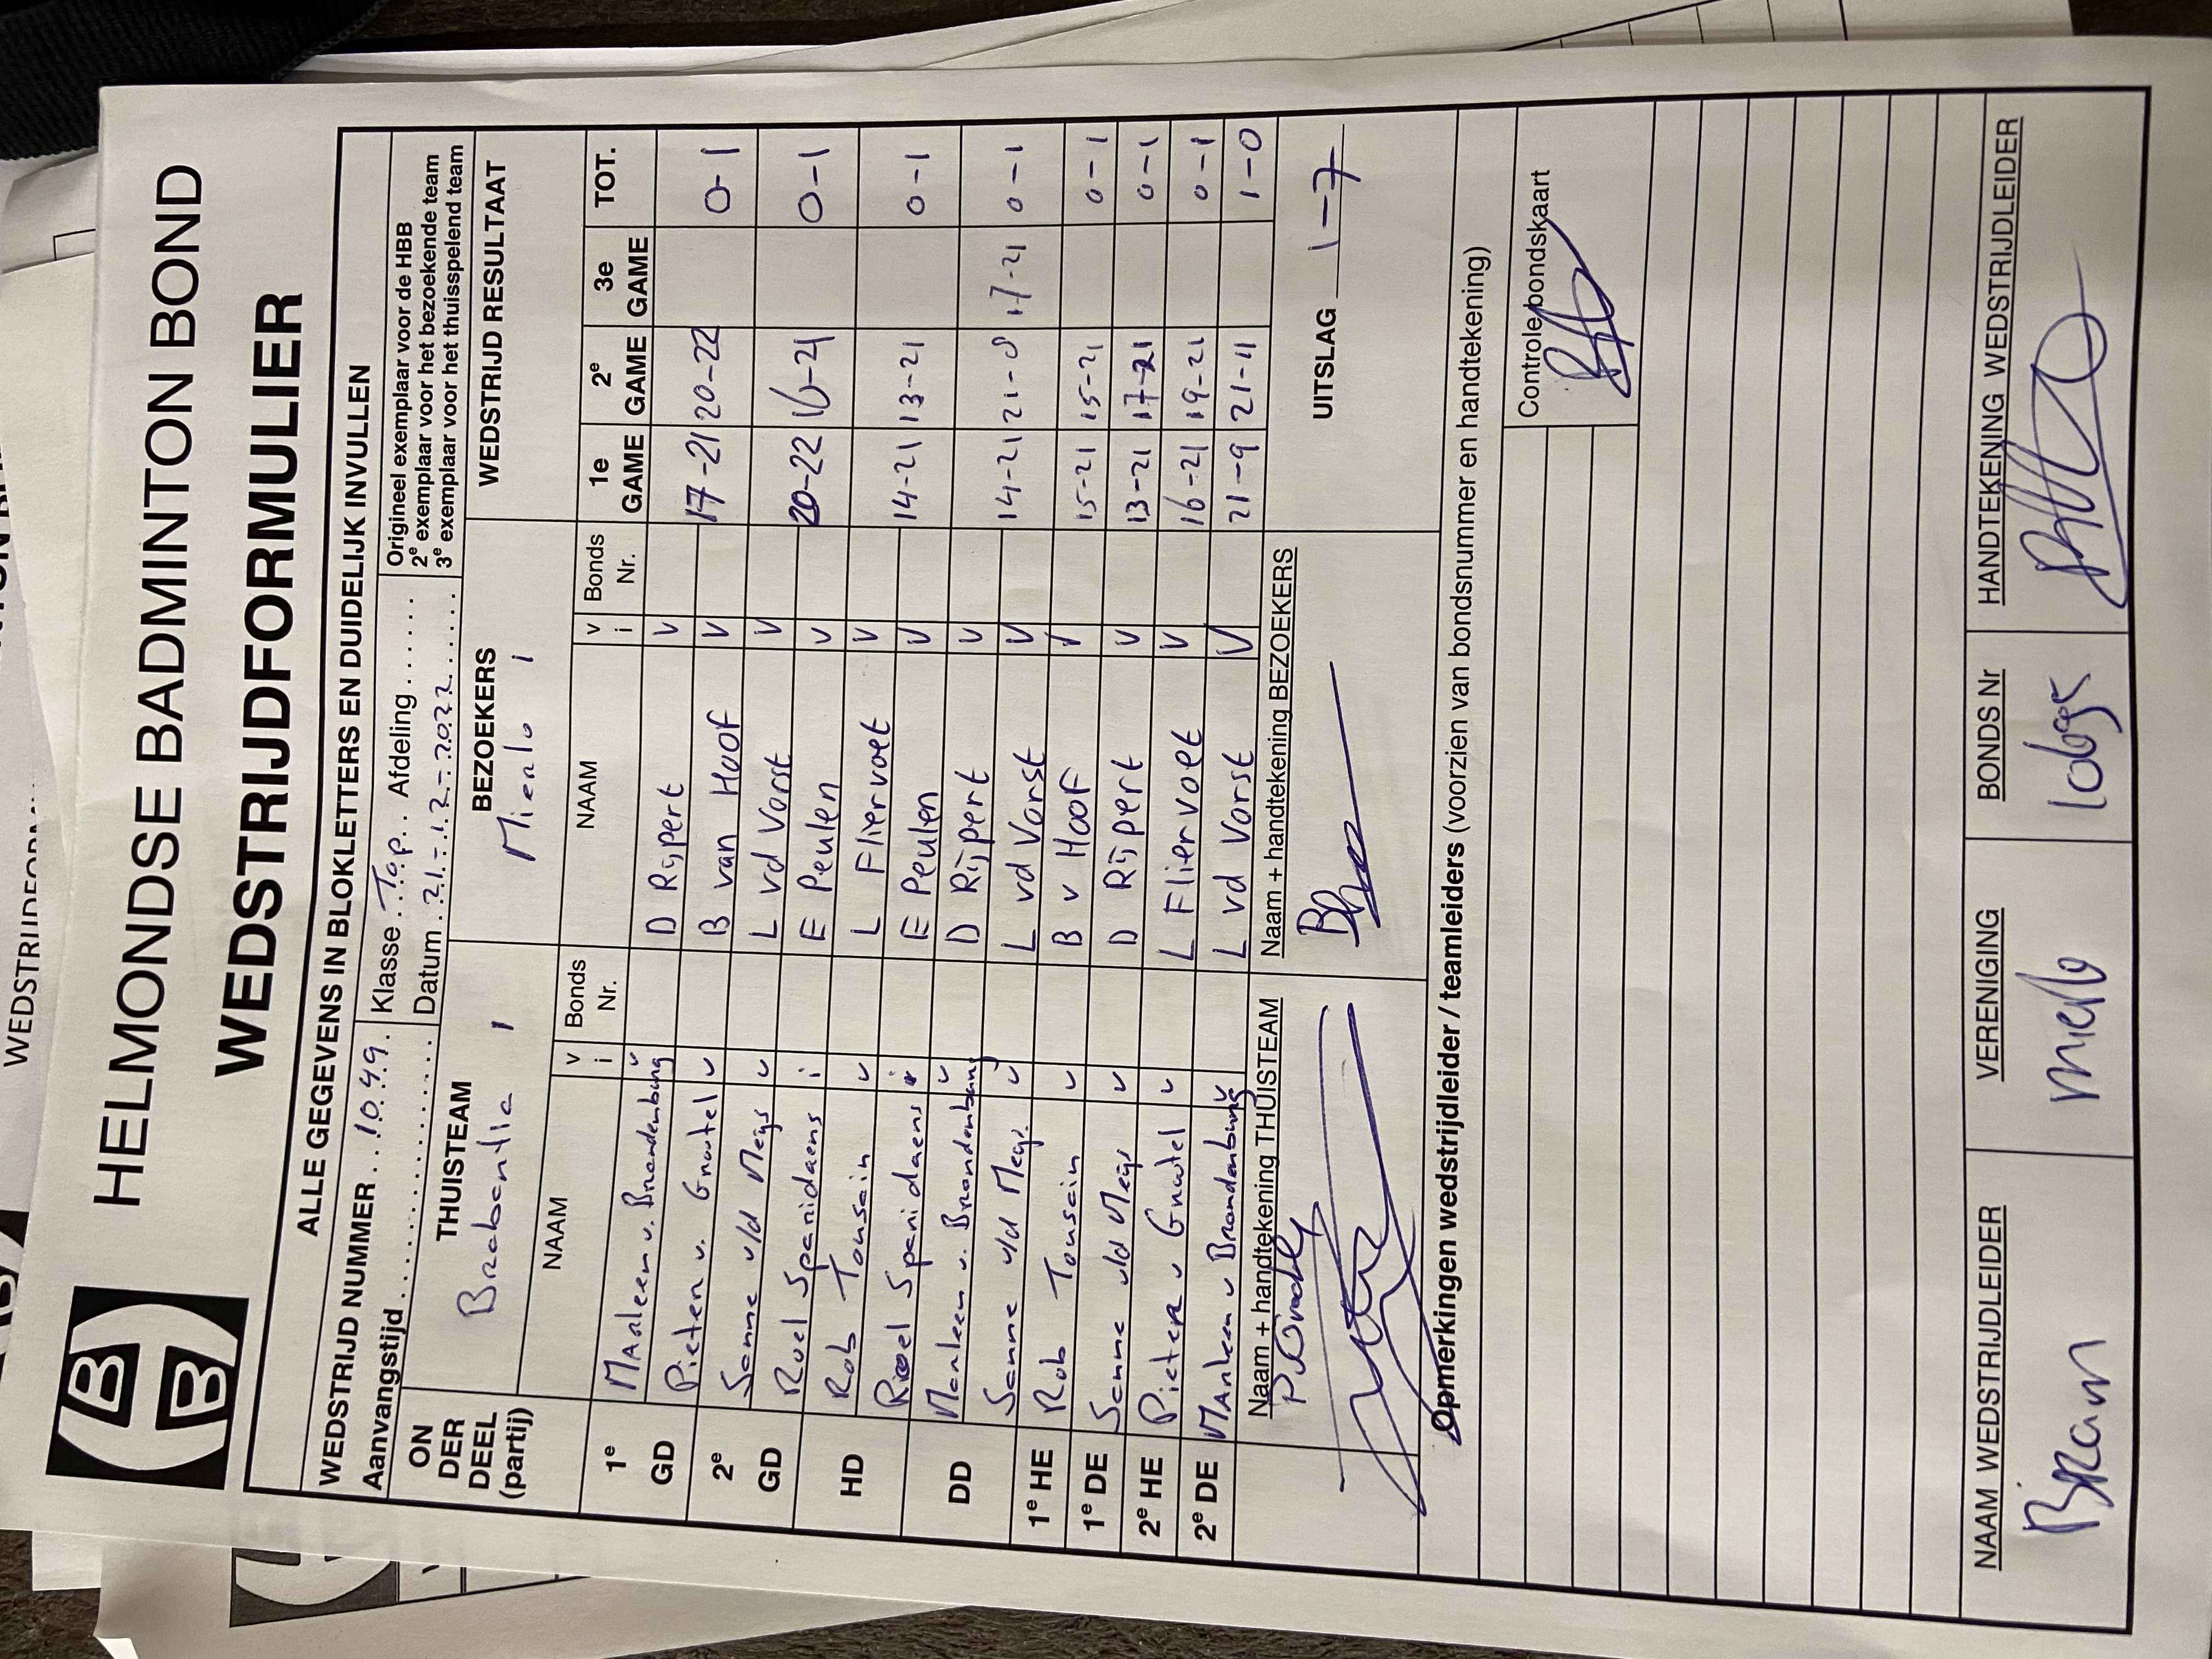 HELMONDSE BADMINTON BOND
WEDSTRIJDFORMULIER
ALLE GEGEVENS IN BLOKLETTERS EN DUIDELIJK INVULLEN
WEDSTRIJD NUMMER 1049 Klasse Top Afdeling
Origineel exemplaar voor de HBB
2e exemplaar voor het bezoekende team
3e exemplaar voor het thuisspelend team
Aanvangstijd Datum 21-12-2022
ON DER DEEL (partij) THUISTEAM BEZOEKERS WEDSTRIJD RESULTAAT
Brabantia 1 Mierlo 1
NAAM v i Bonds Nr. NAAM v i Bonds Nr. 1e GAME 2e GAME 3e GAME TOT.
1e GD MAarleen v. Brandenburg v D Rijpert v
Pieter v. Grootel v B van Hoof v 17-21 20-22 0-1
2e GD Sanne v/d Meijs v L vd Vorst v
Roel Spanidaens i E Peulen v 20-22 16-21 0-1
HD Rob Tousain v L Fliervoet v
Roel Spanidaens i E Peulen v 14-21 13-21 0-1
DD Marleen v. Brandenburg v D Rijpert v
Sanne v/d Meijs v L vd Vorst v 14-21 21-8 17-21 0-1
1e HE Rob Tousain v B v Hoof v 15-21 15-21 0-1
1e DE Sanne v/d Meijs v D Rijpert v 13-21 17-21 0-1
2e HE Pieter v Grootel v L Fliervoet v 16-21 19-21 0-1
2e DE MArleen v Brandenburg v L vd Vorst v 21-9 21-11 1-0
Naam + handtekening THUISTEAM Naam + handtekening BEZOEKERS UITSLAG 1-7
Opmerkingen wedstrijdleider / teamleiders (voorzien van bondsnummer en handtekening)
Controle bondskaart
NAAM WEDSTRIJDLEIDER VERENIGING BONDS Nr HANDTEKENING WEDSTRIJDLEIDER
Bram Mierlo